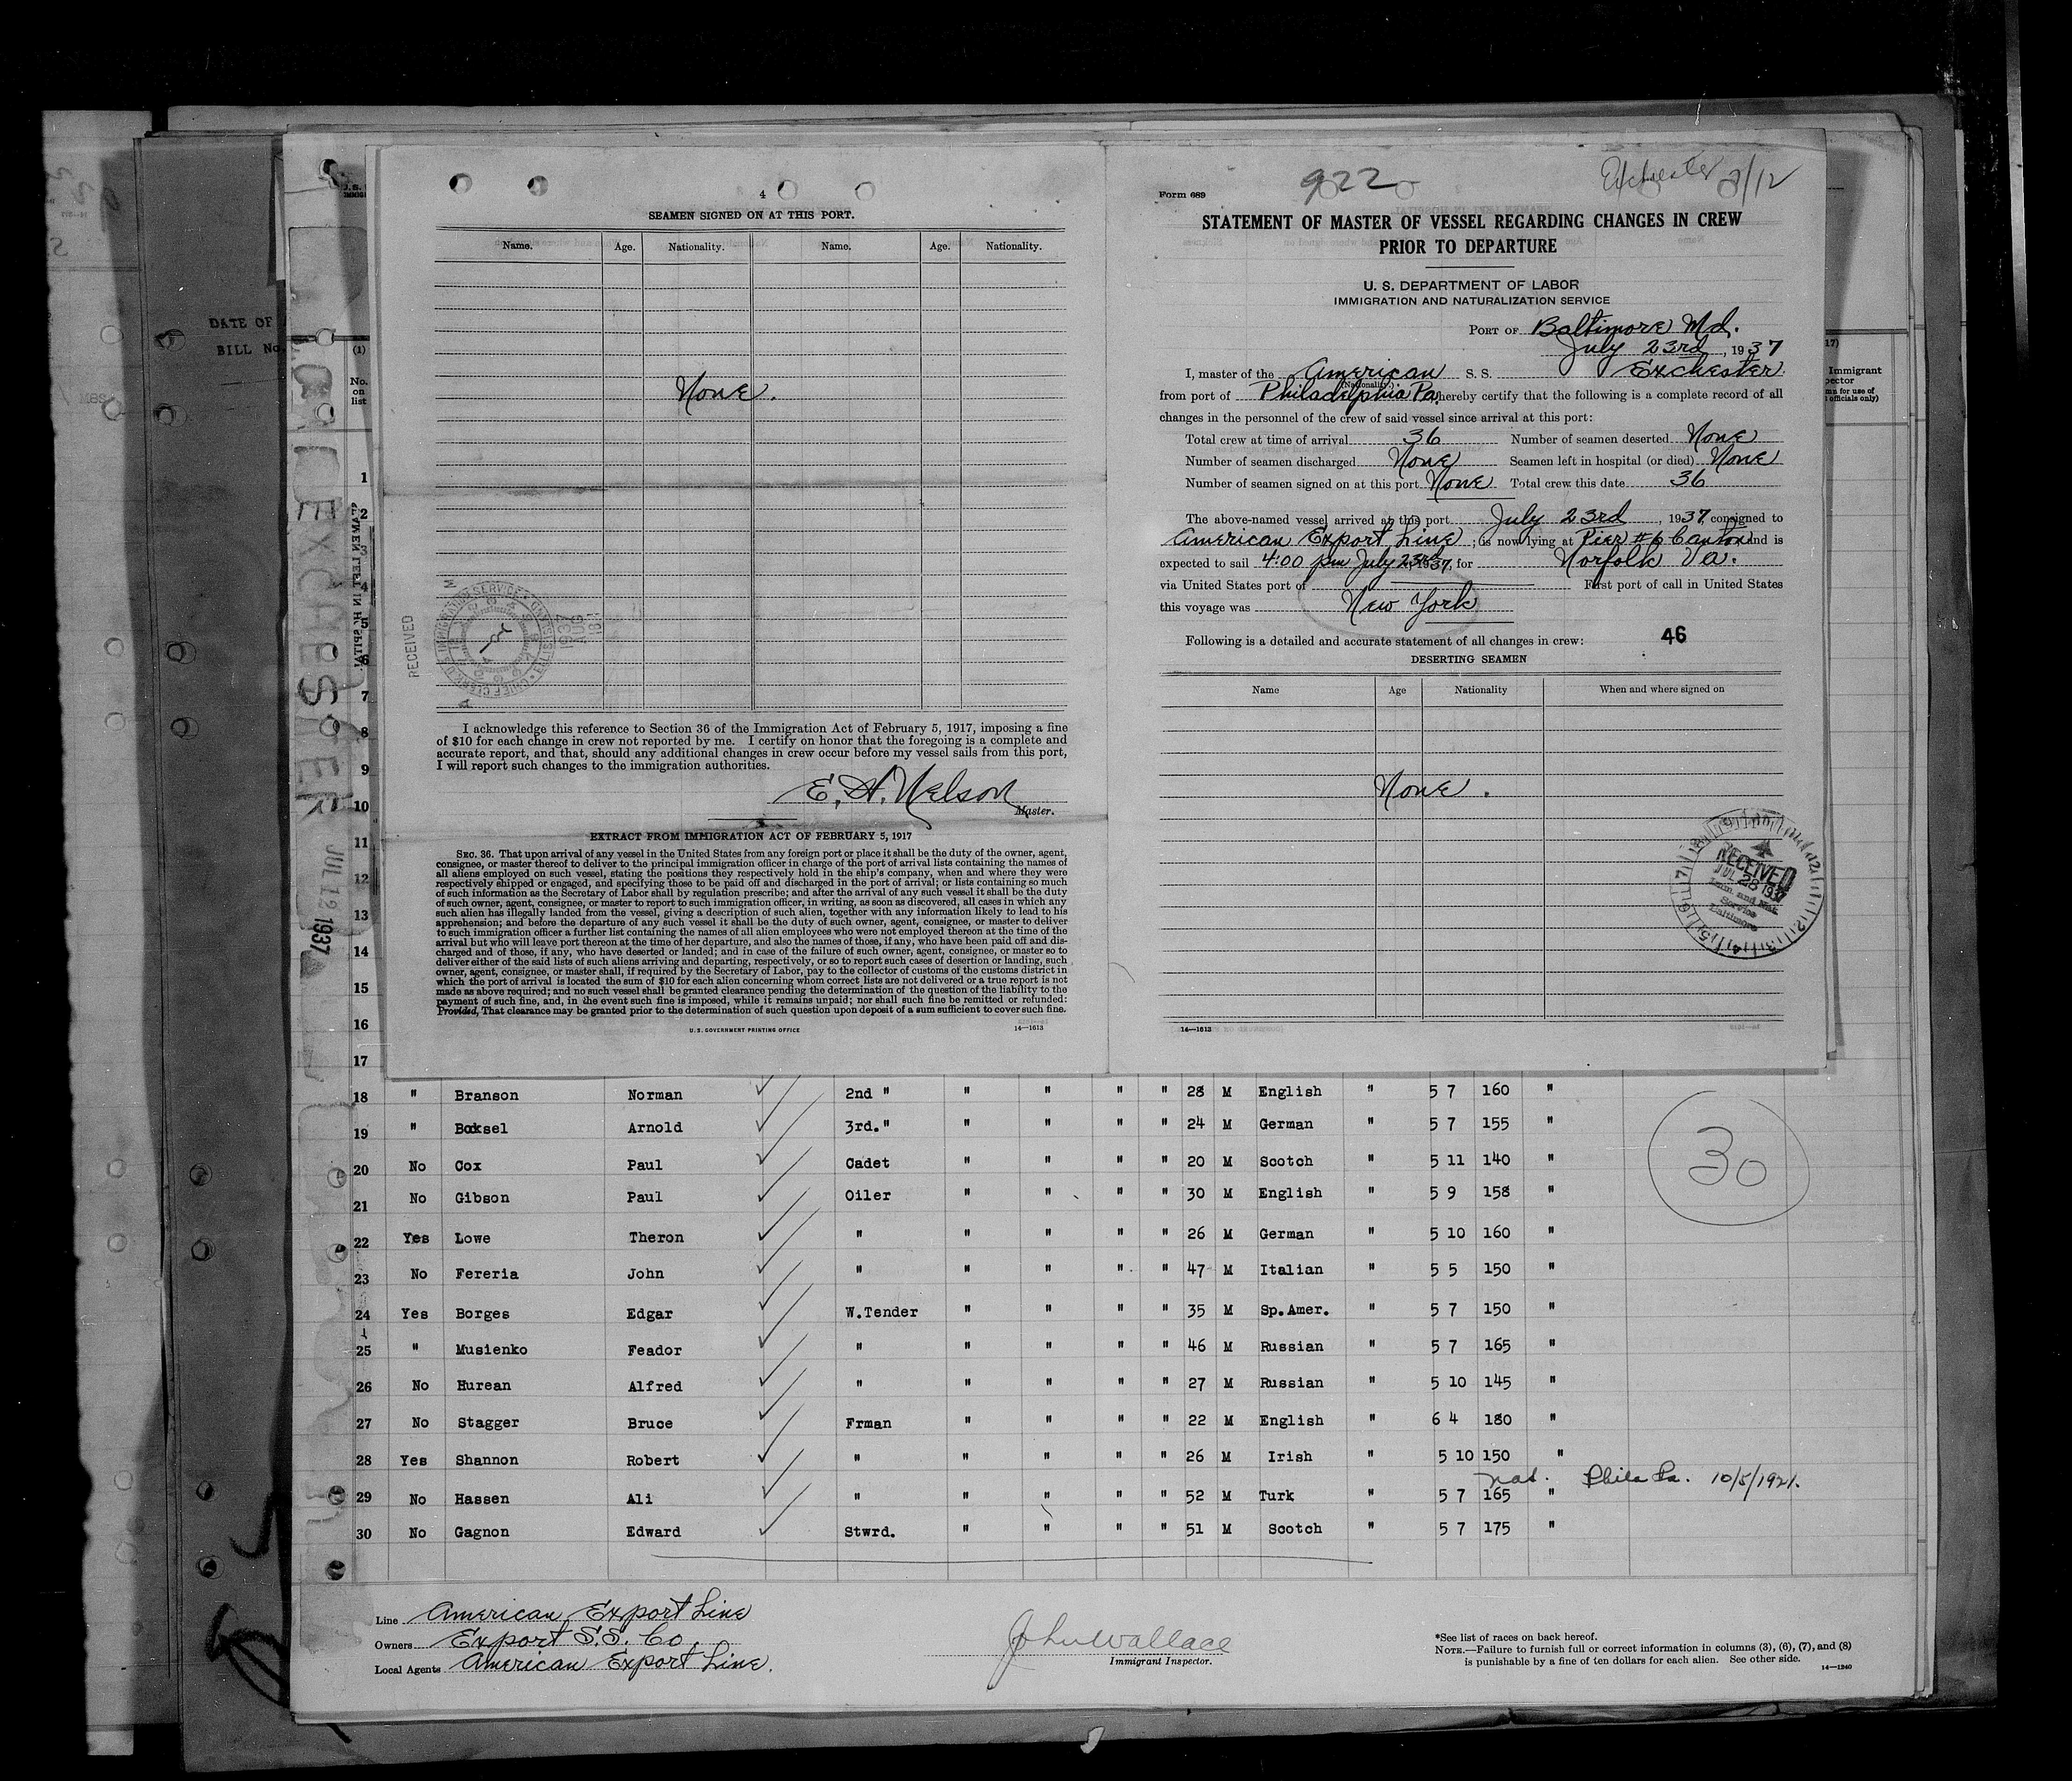 4
SEAMEN SIGNED ON AT THIS PORT.
Name. Age. Nationality. Name. Age. Nationality.
None.
RECEIVED
1937
AUG
I acknowledge this reference to Section 36 of the Immigration Act of February 5, 1917, imposing a fine
of $10 for each change in crew not reported by me. I certify on honor that the foregoing is a complete and
accurate report, and that, should any additional changes in crew occur before my vessel sails from this port,
I will report such changes to the immigration authorities.
E. A. Nelson
Master.
EXTRACT FROM IMMIGRATION ACT OF FEBRUARY 5, 1917
SEC. 36. That upon arrival of any vessel in the United States from any foreign port or place it shall be the duty of the owner, agent,
consignee, or master thereof to deliver to the principal immigration officer in charge of the port of arrival lists containing the names of
all aliens employed on such vessel, stating the positions they respectively hold in the ship's company, when and where they were
respectively shipped or engaged, and specifying those to be paid off and discharged in the port of arrival; or lists containing so much
of such information as the Secretary of Labor shall by regulation prescribe; and after the arrival of any such vessel it shall be the duty
of such owner, agent, consignee, or master to report to such immigration officer, in writing, as soon as discovered, all cases in which any
such alien has illegally landed from the vessel, giving a description of such alien, together with any information likely to lead to his
apprehension; and before the departure of any such vessel it shall be the duty of such owner, agent, consignee, or master to deliver
to such immigration officer a further list containing the names of all alien employees who were not employed thereon at the time of the
arrival but who will leave port thereon at the time of her departure, and also the names of those, if any, who have been paid off and dis-
charged and of those, if any, who have deserted or landed; and in case of the failure of such owner, agent, consignee, or master so to
deliver either of the said lists of such aliens arriving and departing, respectively, or so to report such cases of desertion or landing, such
owner, agent, consignee, or master shall, if required by the Secretary of Labor, pay to the collector of customs of the customs district in
which the port of arrival is located the sum of $10 for each alien concerning whom correct lists are not delivered or a true report is not
made as above required; and no such vessel shall be granted clearance pending the determination of the question of the liability to the
payment of such fine, and, in the event such fine is imposed, while it remains unpaid; nor shall such fine be remitted or refunded:
Provided, That clearance may be granted prior to the determination of such question upon deposit of a sum sufficient to cover such fine.
U. S. GOVERNMENT PRINTING OFFICE 14—1613
922 Exchester 7/12
Form 689
STATEMENT OF MASTER OF VESSEL REGARDING CHANGES IN CREW
PRIOR TO DEPARTURE
U. S. DEPARTMENT OF LABOR
IMMIGRATION AND NATURALIZATION SERVICE
PORT OF Baltimore Md.
July 23rd, 1937
I, master of the American S. S. Exchester
(Nationality.)
from port of Philadelphia Pa. hereby certify that the following is a complete record of all
changes in the personnel of the crew of said vessel since arrival at this port:
Total crew at time of arrival 36 Number of seamen deserted None
Number of seamen discharged None Seamen left in hospital (or died) None
Number of seamen signed on at this port None Total crew this date 36
The above-named vessel arrived at this port July 23rd, 1937, consigned to
American Export Line; is now lying at Pier #6 Canton and is
expected to sail 4:00 pm July 23rd, 1937, for Norfolk Va.
via United States port of First port of call in United States
this voyage was New York
Following is a detailed and accurate statement of all changes in crew: 46
DESERTING SEAMEN
Name Age Nationality When and where signed on
None.
RECEIVED
JUL 28 1937
Imm. and Nat.
Service
Baltimore
14—1613
DATE OF
BILL No.
EXCHESTER
JUL 12 1937
(1)
No.
on
list
17)
Immigrant
pector
n for use of
officials only)
1
2
3
4
5
6
7
8
9
10
11
12
13
14
15
16
17
18 " Branson Norman 2nd " " " " " 28 M English " 5 7 160 "
19 " Boksel Arnold 3rd." " " " " 24 M German " 5 7 155 "
20 No Cox Paul Cadet " " " " 20 M Scotch " 5 11 140 "
21 No Gibson Paul Oiler " " " " 30 M English " 5 9 158 "
22 Yes Lowe Theron " " " " " 26 M German " 5 10 160 "
23 No Fereria John " " " " " 47 M Italian " 5 5 150 "
24 Yes Borges Edgar W.Tender " " " " 35 M Sp.Amer. " 5 7 150 "
25 " Musienko Feador " " " " " 46 M Russian " 5 7 165 "
26 No Hurean Alfred " " " " " 27 M Russian " 5 10 145 "
27 No Stagger Bruce Frman " " " " 22 M English " 6 4 180 "
28 Yes Shannon Robert " " " " " 26 M Irish " 5 10 150 "
nat. Phila Pa. 10/5/1921.
29 No Hassen Ali " " " " " 52 M Turk " 5 7 165 "
30 No Gagnon Edward Stwrd. " " " " 51 M Scotch " 5 7 175 "
30
Line American Export Line
Owners Export S.S. Co.
Local Agents American Export Line.
John Wallace
Immigrant Inspector.
*See list of races on back hereof.
NOTE.—Failure to furnish full or correct information in columns (3), (6), (7), and (8)
is punishable by a fine of ten dollars for each alien. See other side.
14—1240